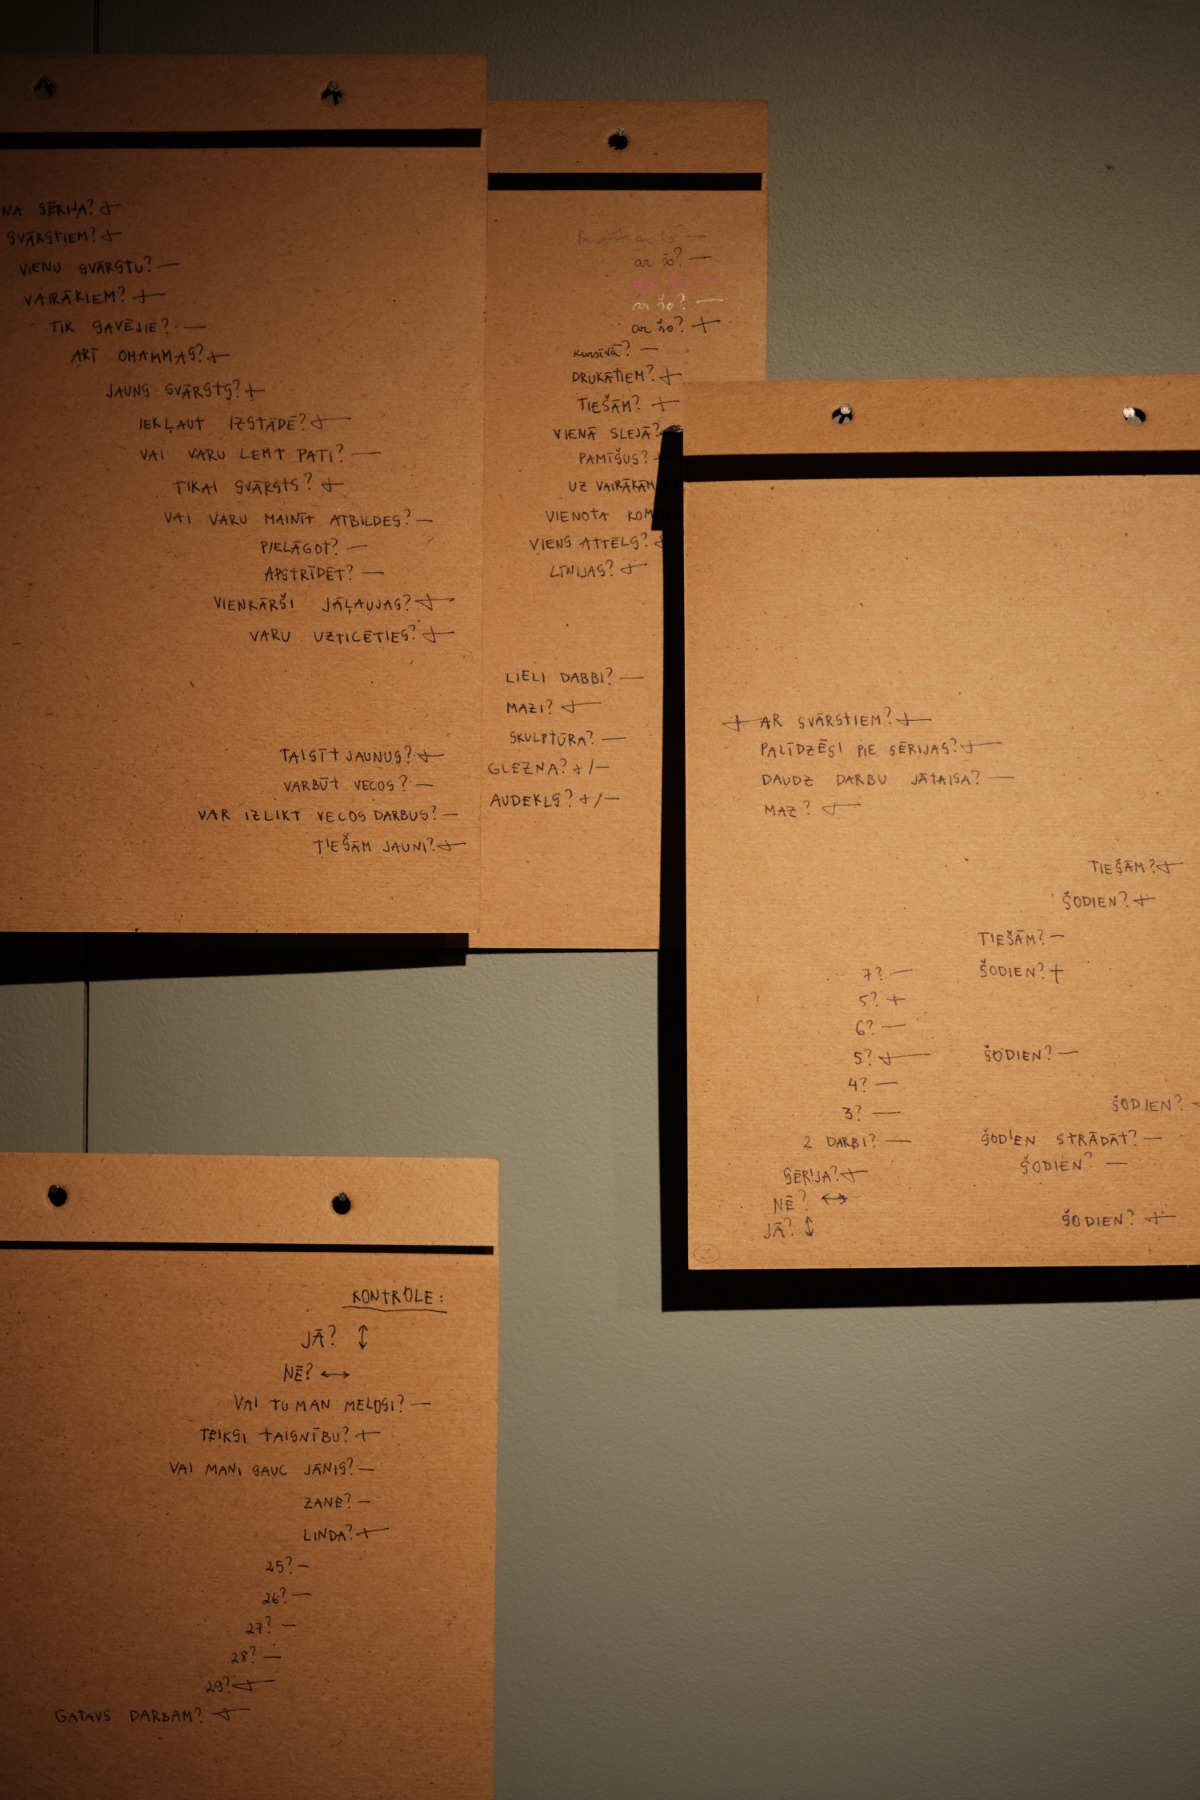 NA SĒRIJA? +
SVĀRSTIEM? +
VIENU SVĀRSTU? —
VAIRĀKIEM? +
TIK SAVĒJIE? —
ARĪ OMAMMAS? +
JAUNS SVĀRSTS? +
IEKĻAUT IZSTĀDĒ? +
VAI VARU LEMT PATI? —
TIKAI SVĀRSTS? +
VAI VARU MAINĪT ATBILDES? —
PIELĀGOT? —
APSTRĪDĒT? —
VIENKĀRŠI JĀĻAUJAS? +
VARU UZTICĒTIES? +
TAISĪT JAUNUS? +
VARBŪT VECOS? —
VAR IZLIKT VECOS DARBUS? —
TIEŠĀM JAUNI? +
ar šo? —
ar šo? —
ar šo? —
ar šo? +
kursīvā? —
DRUKĀTIEM? +
TIEŠĀM? +
VIENĀ SLEJĀ?
PAMĪŠUS?
UZ VAIRĀKĀM
VIENOTA KOM
VIENS ATTĒLS?
LĪNIJAS? +
LIELI DABBI? —
MAZI? +
SKULPTŪRA? —
GLEZNA? +/—
AUDEKLS? +/—
+ AR SVĀRSTIEM? +
PALĪDZĒSI PIE SĒRIJAS? +
DAUDZ DARBU JĀTAISA? —
MAZ? +
TIEŠĀM? +
ŠODIEN? +
TIEŠĀM? —
7? — ŠODIEN? +
5? +
6? —
5? + ŠODIEN? —
4? —
3? — ŠODIEN? —
2 DARBI? — ŠODIEN STRĀDĀT? —
SĒRIJA? + ŠODIEN? —
NĒ? ↔
JĀ? ↕ ŠODIEN? +
KONTROLE:
JĀ? ↕
NĒ? ↔
VAI TU MAN MELOSI? —
TEIKSI TAISNĪBU? +
VAI MANI SAUC JĀNIS? —
ZANE? —
LINDA? +
25? —
26? —
27? —
28? —
29? +
GATAVS DARBAM? +